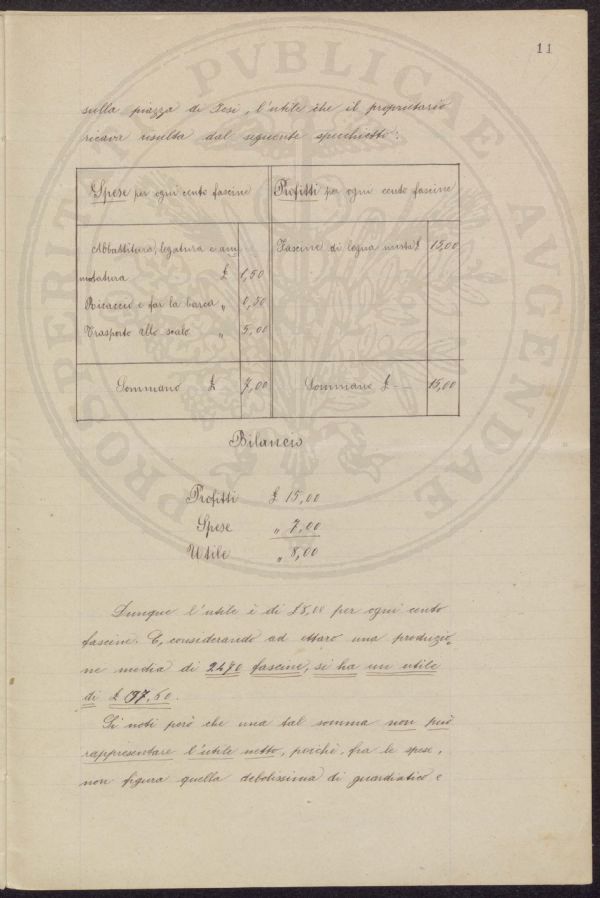 11
PROSPERITATI PVBLICAE AVGENDAE
sulla piazza di Jesi, l'utile che il proprietario
ricava risulta dal seguente specchietto:
Spese per ogni cento fascine
Profitti per ogni cento fascine
Abbattitura, legatura e am
mutatura £ 1,50
Ricaccio e far la barca „ 0,50
Trasporto allo scalo „ 5,00
Fascine di legna mista £ 15,00
Sommano £ 7,00
Sommano £ -- 15,00
Bilancio
Profitti £ 15,00
Spese „ 7,00
Utile „ 8,00
Dunque l'utile è di £ 8,00 per ogni cento
fascine. E, considerando ad ettaro una produzio
ne media di 2470 fascine, si ha un utile
di £ 197,60.
Si noti però che una tal somma non può
rappresentare l'utile netto, perchè, fra le spese,
non figura quella debolissima di guardiatico e